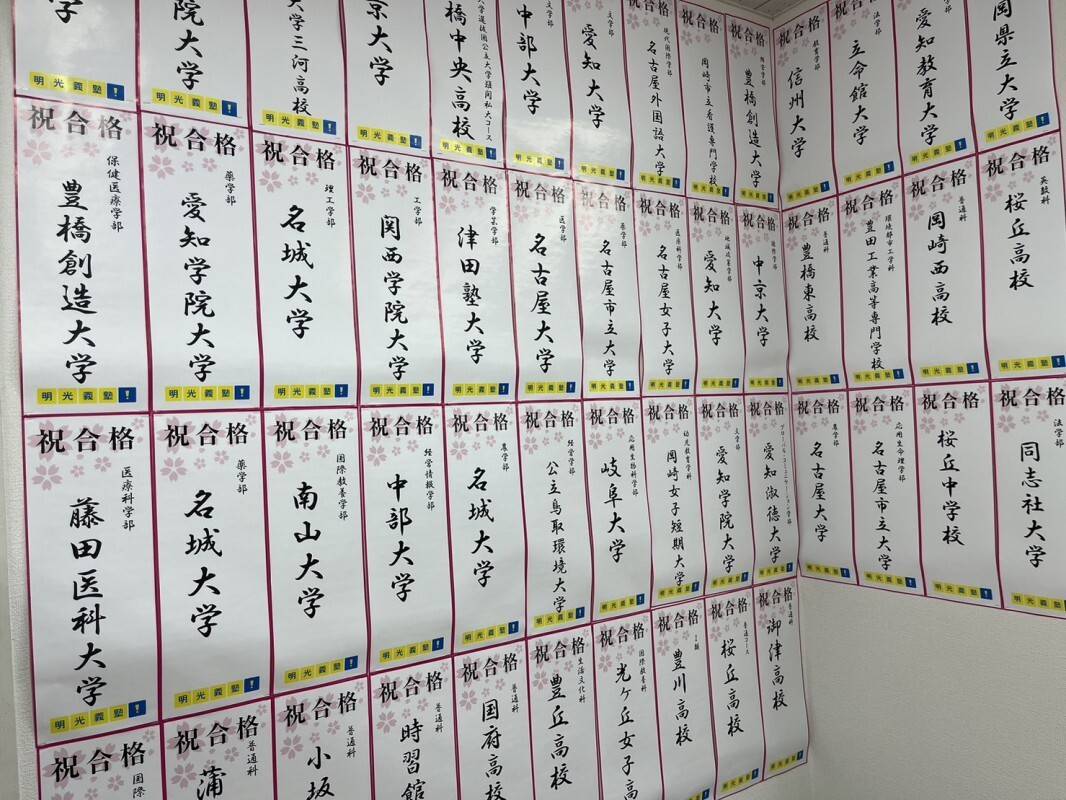 学
明光義塾
院大学
明光義塾
大学三河高校
明光義塾
京大学
明光義塾
橋中央高校
明光義塾
文学部
中部大学
明光義塾
文学部
愛知大学
明光義塾
祝合格
現代国際学部
名古屋外国語大学
明光義塾
祝合格
岡崎市立看護専門学校
明光義塾
祝合格
豊橋創造大学
明光義塾
祝合格
教育学部
信州大学
明光義塾
法学部
立命館大学
明光義塾
愛知教育大学
明光義塾
岡県立大学
明光義塾
祝合格
保健医療学部
豊橋創造大学
明光義塾
祝合格
薬学部
愛知学院大学
明光義塾
祝合格
理工学部
名城大学
明光義塾
祝合格
工学部
関西学院大学
明光義塾
祝合格
学芸学部
津田塾大学
明光義塾
祝合格
医学部
名古屋大学
明光義塾
祝合格
薬学部
名古屋市立大学
明光義塾
祝合格
医療科学部
名古屋女子大学
明光義塾
祝合格
地域政策学部
愛知大学
明光義塾
祝合格
中京大学
明光義塾
祝合格
普通科
豊橋東高校
明光義塾
祝合格
環境都市工学科
豊田工業高等専門学校
明光義塾
祝合格
普通科
岡崎西高校
明光義塾
祝合格
英数科
桜丘高校
明光義塾
祝合格
医療科学部
藤田医科大学
明光義塾
祝合格
薬学部
名城大学
明光義塾
祝合格
国際教養学部
南山大学
明光義塾
祝合格
経営情報学部
中部大学
明光義塾
祝合格
農学部
名城大学
明光義塾
祝合格
経営学部
公立鳥取環境大学
明光義塾
祝合格
応用生物科学部
岐阜大学
明光義塾
祝合格
幼児教育学科
岡崎女子短期大学
明光義塾
祝合格
文学部
愛知学院大学
明光義塾
祝合格
グローバル・コミュニケーション学部
愛知淑徳大学
明光義塾
祝合格
農学部
名古屋大学
明光義塾
祝合格
応用生命理学部
名古屋市立大学
明光義塾
祝合格
桜丘中学校
明光義塾
祝合格
法学部
同志社大学
明光義塾
祝合格
国際
祝合格
普通科
蒲
祝合格
普通科
小坂
祝合格
普通科
時習館
祝合格
普通科
国府高校
祝合格
生活文化科
豊丘高校
祝合格
国際教養科
光ヶ丘女子高
祝合格
豊川高校
明光義塾
祝合格
普通コース
桜丘高校
明光義塾
祝合格
普通科
御津高校
明光義塾